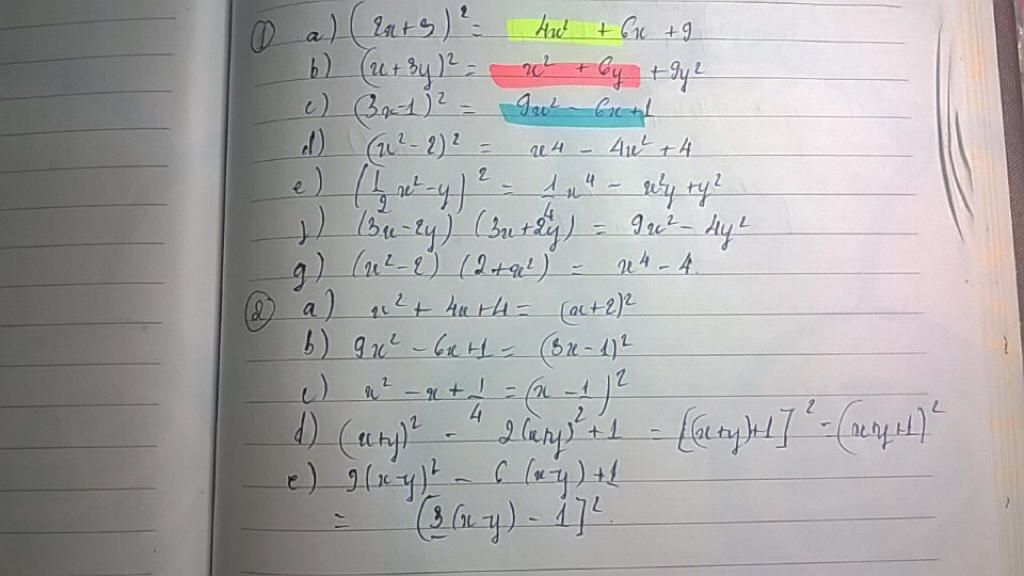 ① a) (2x+3)² = 4x² + 6x + 9
b) (x+3y)² = x² + 6y + 9y²
c) (3x-1)² = 9x² - 6x+1
d) (x²-2)² = x⁴ - 4x² + 4
e) (1/2 x²-y)² = 1/4 x⁴ - x²y + y²
f) (3x-2y) (3x+2y) = 9x² - 4y²
g) (x²-2) (2+x²) = x⁴ - 4.
② a) x² + 4x + 4 = (x+2)²
b) 9x² - 6x+1 = (3x-1)²
c) x² - x + 1/4 = (x - 1)²
d) (x+y)² - 2(x+y)² + 1 = [(x+y)+1]² = (x+y+1)²
e) 9(x-y)² - 6 (x-y) + 1
= (3(x-y) - 1]².